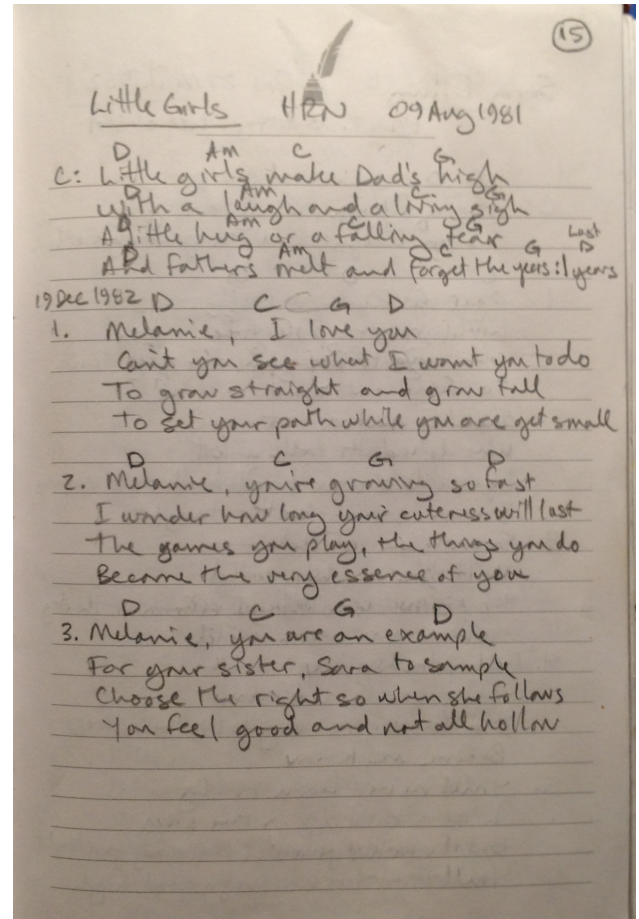 15
Little Girls HRN 09 Aug 1981
D Am C G
C: Little girls make Dad's high
D Am C G
with a laugh and a living sigh
D Am C G
A little hug or a falling tear
D Am C G Last D
And fathers melt and forget the years :| years
19 Dec 1982 D C G D
1. Melanie, I love you
Can't you see what I want you to do
To grow straight and grow tall
To set your path while you are yet small
D C G D
2. Melanie, you're growing so fast
I wonder how long your cuteness will last
The games you play, the things you do
Become the very essence of you
D C G D
3. Melanie, you are an example
For your sister, Sara to sample
Choose the right so when she follows
You feel good and not all hollow